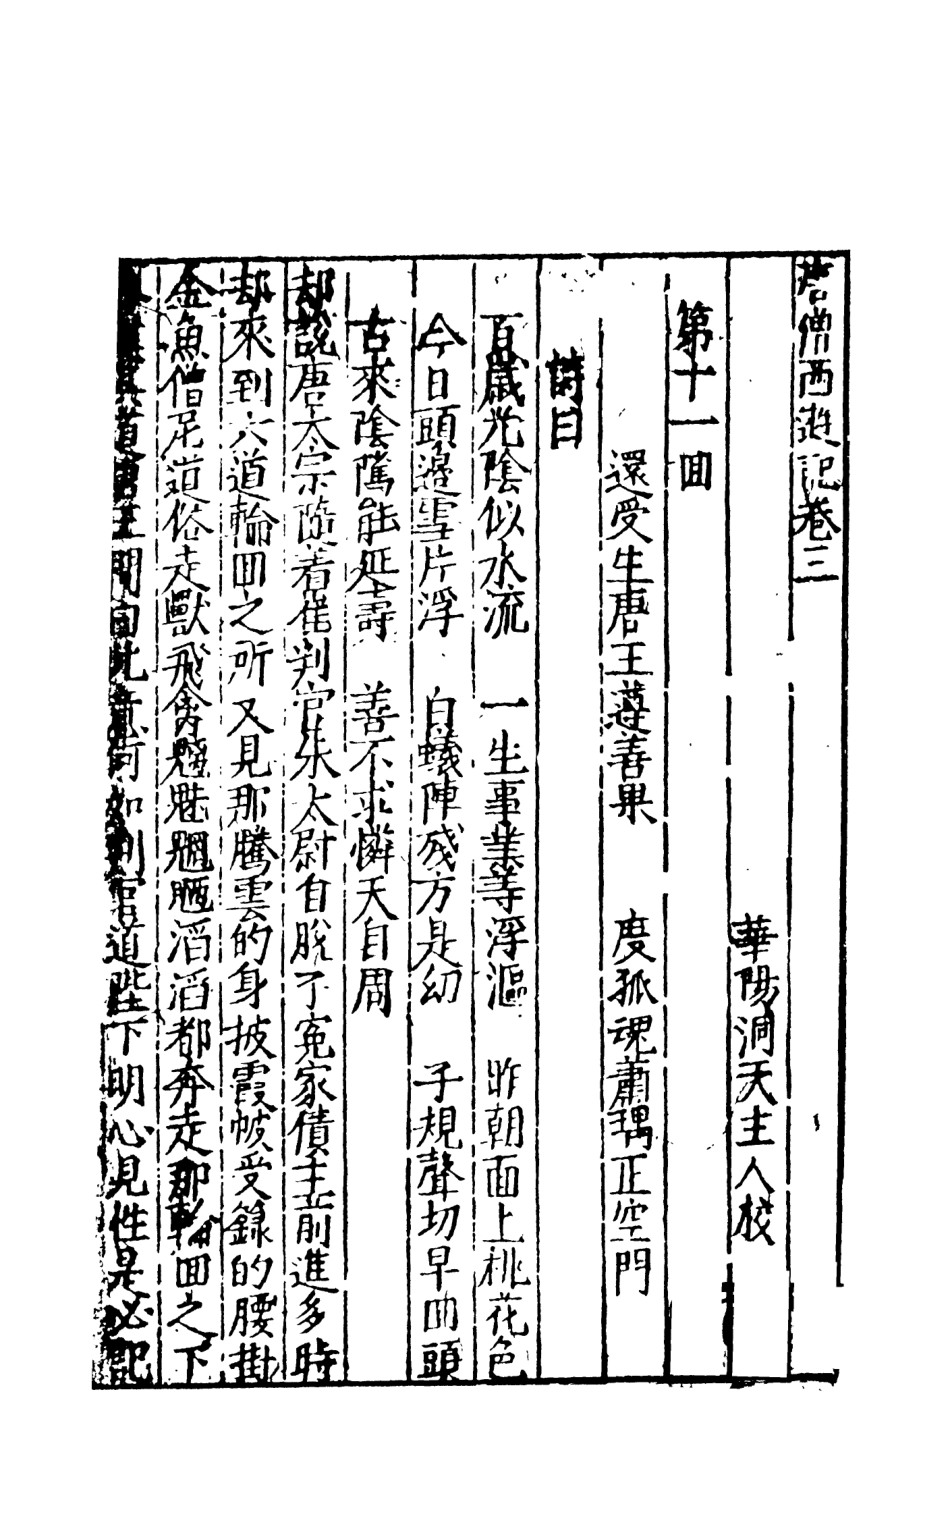 唐僧西遊記卷三
華陽洞天主人校
第十一回
還受生唐王遵善果　度孤魂蕭瑀正空門
詩曰
百歲光陰似水流　一生事業等浮漚　昨朝面上桃花色
今日頭邊雪片浮　白蟻陣殘方是幻　子規聲切早回頭
古來陰隲能延壽　善不求憐天自周
却說唐太宗隨着崔判官朱太尉自脫了冤家債主前進多時
却來到六道輪回之所又見那騰雲的身披霞帔受籙的腰掛
金魚僧尼道俗走獸飛禽魑魅魍魎滔滔都奔走那輪回之下
其道唐王問曰此意何如判官道陛下明心見性是必記